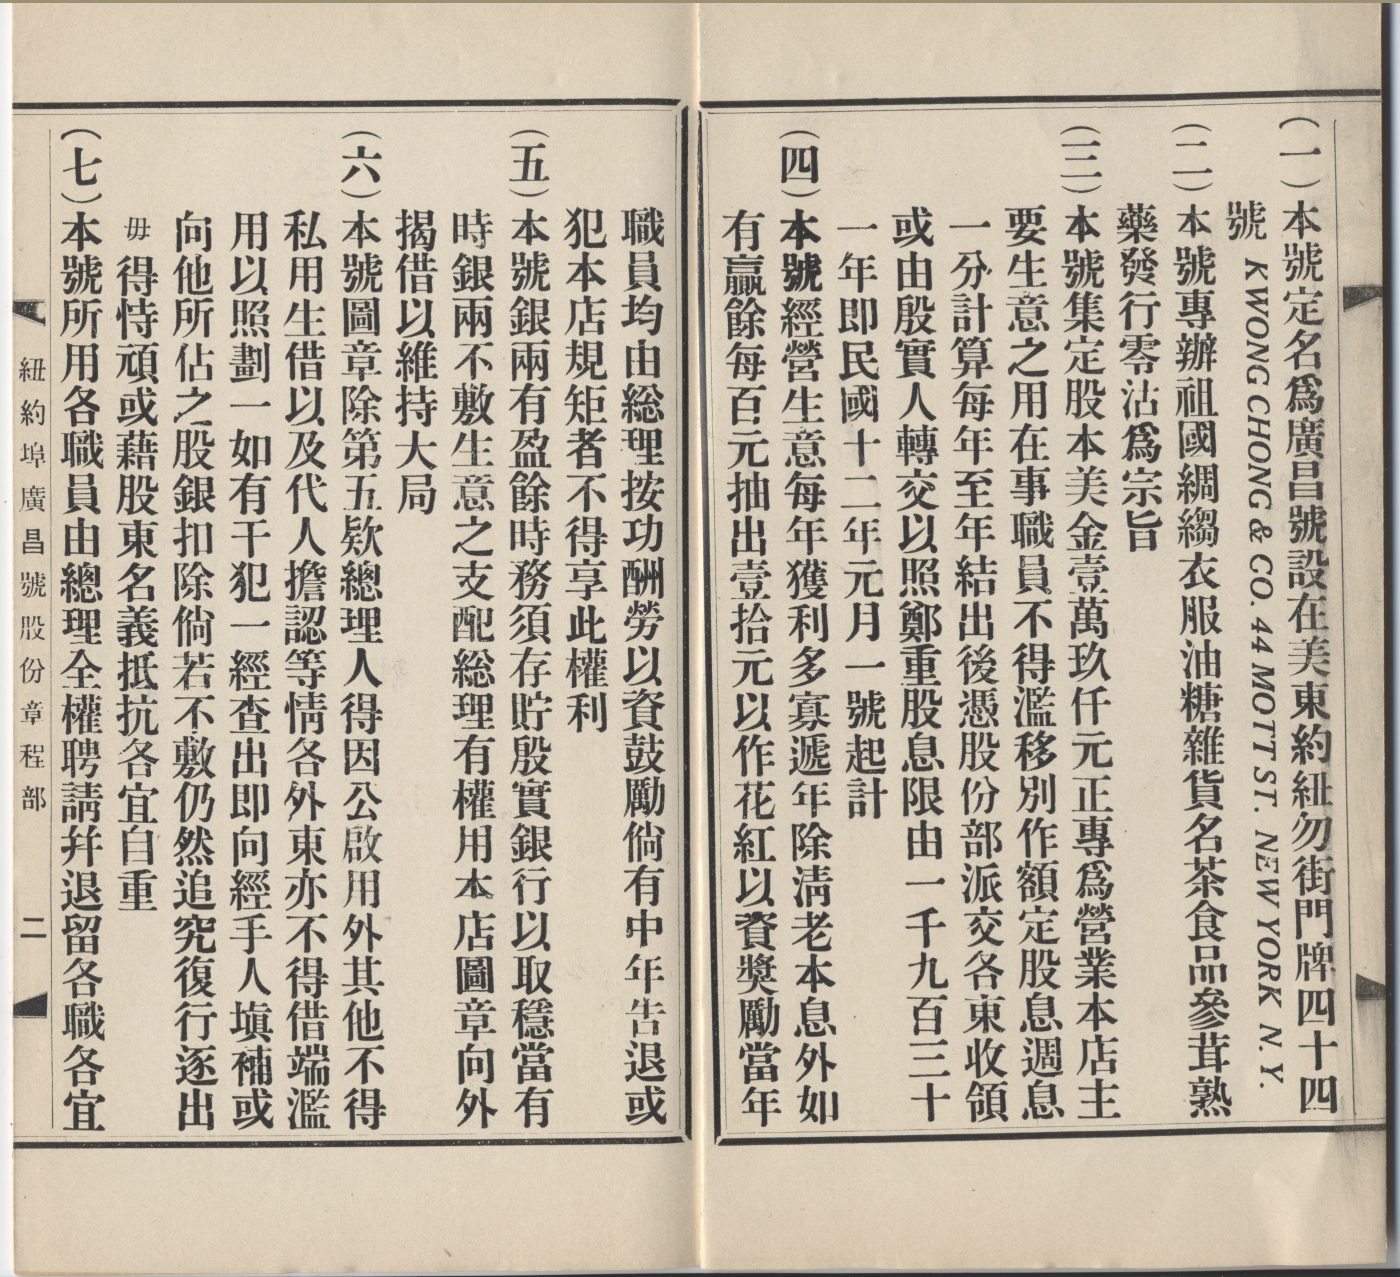 (一)本號定名爲廣昌號設在美東約紐勿街門牌四十四
號 KWONG CHONG & CO. 44 MOTT ST. NEW YORK N.Y.
(二)本號專辦祖國綢縐衣服油糖雜貨名茶食品參茸熟
藥發行零沽爲宗旨
(三)本號集定股本美金壹萬玖仟元正專爲營業本店主
要生意之用在事職員不得濫移別作額定股息週息
一分計算每年至年結出後憑股份部派交各東收領
或由殷實人轉交以照鄭重股息限由一千九百三十
一年即民國十二年元月一號起計
(四)本號經營生意每年獲利多寡遞年除淸老本息外如
有贏餘每百元抽出壹拾元以作花紅以資獎勵當年
職員均由総理按功酬勞以資鼓勵倘有中年告退或
犯本店規矩者不得享此權利
(五)本號銀兩有盈餘時務須存貯殷實銀行以取穩當有
時銀兩不敷生意之支配総理有權用本店圖章向外
揭借以維持大局
(六)本號圖章除第五欵總理人得因公啟用外其他不得
私用生借以及代人擔認等情各外東亦不得借端濫
用以照劃一如有干犯一經查出即向經手人塡補或
向他所佔之股銀扣除倘若不敷仍然追究復行逐出
毋得恃頑或藉股東名義抵抗各宜自重
(七)本號所用各職員由總理全權聘請幷退留各職各宜
紐約埠廣昌號股份章程部 二